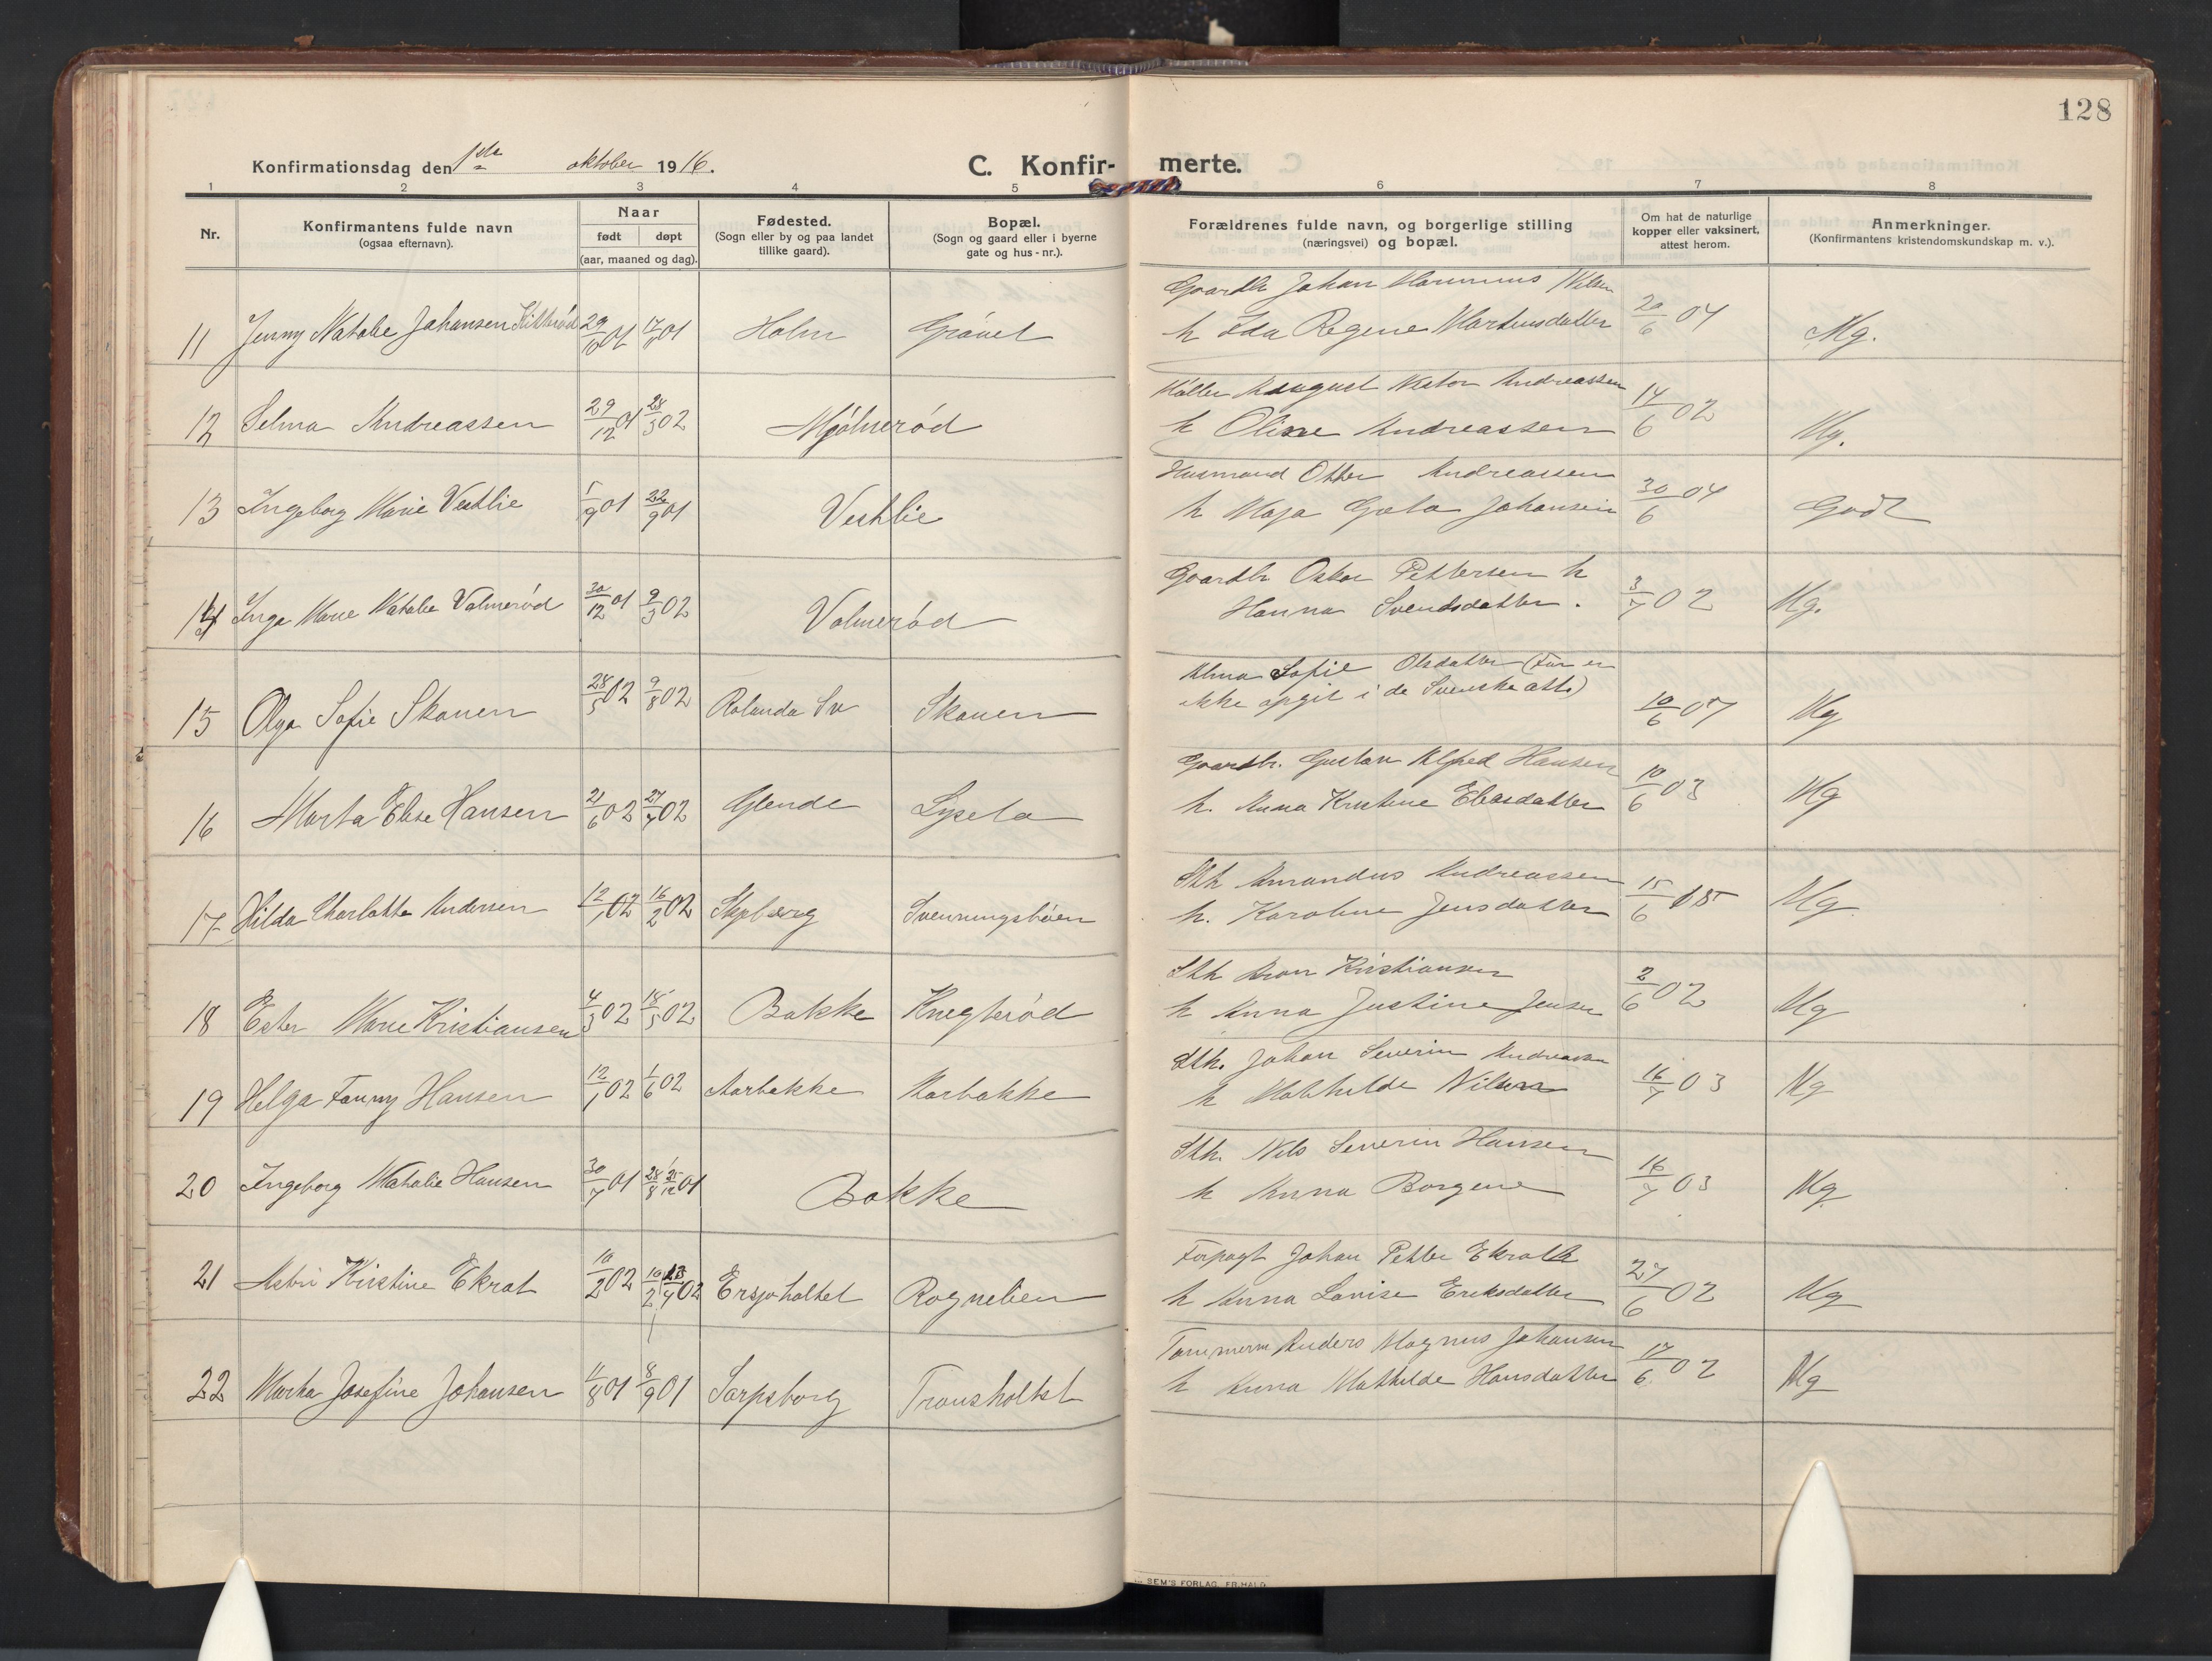 128
Konfirmationsdag den 1ste oktober 1916.
C. Konfir- merte.
1 2 3 4 5 6 7 8
Nr.
Konfirmantens fulde navn
(ogsaa efternavn).
Naar
født døpt
(aar, maaned og dag).
Fødested.
(Sogn eller by og paa landet
tillike gaard).
Bopæl.
(Sogn og gaard eller i byerne
gate og hus-nr.).
Forældrenes fulde navn, og borgerlige stilling
(næringsvei) og bopæl.
Om hat de naturlige
kopper eller vaksinert,
attest herom.
Anmerkninger.
(Konfirmantens kristendomskundskap m. v.).
Gaardbr Johan Nilsen
11 Jenny Natalie Johansen 29/10 01 Holm Graael h Ida Regine Martinsdatter 20/6 04 Mg.
August Victor Andreassen
12 Selma Andreassen 29/12 01 28/3 02 Mjölnerød h Oline Andreassen 14/6 02 Mg.
Husmand Otter Andreassen
13 Ingeborg Marie Vestlie 1/9 01 22/9 01 Vestlie h Maja Johansen 30/6 04 Godt
Gaardbr Oskar Pettersen h
14 Inga Marie Natalie Valmerød 30/12 01 9/3 02 Valmerød Hanna Svendsdatter. 3/7 02 Mg.
Alma Sofie Olsdatter (Far er
ikke opgit i de Svenske att.)
15 Olga Sofie Skauen 28/5 02 9/8 02 Rolanda Sv Skauen 10/6 07 Mg
Gaardbr. Gustav Alfred Hansen
16 Marta Elise Hansen 21/6 02 27/7 02 Glende Lyseto h. Anna Kristine Eliasdatter 10/6 03 Mg
Stk Amandus Andreassen
17 Hilda Charlotte Andersen 12/1 02 16/2 02 Skjeberg Svenningsbøen h. Karoline Jensdatter 15/6 Mg
Stk Aron Kristiansen
18 Ester Marie Kristiansen 4/3 02 18/5 02 Bakke Knegterød h Anna Justine Jensen 2/6 02 Mg
Stk. Johan Severin Andreasen
19 Helga Fanny Hansen 12/1 02 1/6 02 Aarbakke Aarbakke h Mathilde Nilsen 16/7 03 Mg
Stk. Nils Severin Hansen
20 Ingeborg Mathalie Hansen 30/7 01 28/8 25/12 01 Bakke h Anna Borgene 16/7 03 Mg
Forpagt Johan Petter Ekrott
21 Astri Kristine Ekrot 10/2 02 Ersjoholtet Rognelien h Anna Lovise Eriksdatter 27/6 02 Mg
Tømmerm Anders Magnus Johansen
22 Marta Josefine Johansen 4/8 01 8/9 01 Sarpsborg Transholtet h Anna Mathilde Hansdatter 17/6 02 Mg
SEM'S FORLAG, FR.HALD